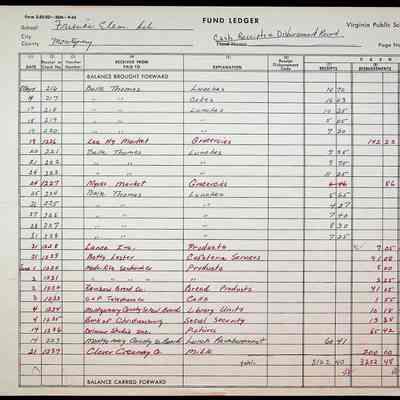 FUND LEDGER
School Elem. Sch.
Virginia Public Sc
City
County Montgomery
Cash Receipts & Disbursement Record
Fund Name
Page No
DATE Receipt or Check No. RECEIVED FROM TO EXPLANATION Receipt Disbursement Code RECEIPTS DISBURSEMENTS
BALANCE BROUGHT FORWARD
216 Thomas Lunches 10 70
17 217 " " Cokes 16 03
17 218 " " Lunches 10 25
18 219 " " " 5 05
19 220 " " " 7 20
19 1226 Market Groceries 142 23
20 221 Thomas Lunches 9 35
21 222 " " " 9 70
24 223 " " " 11 25
24 1227 Market Groceries 86
25 224 Thomas Lunches 5 65
21 225 " " " 4 27
27 226 " " " 7 40
28 227 " " " 8 30
31 228 " " " 7 25
31 1228 Lance Inc. Products 9 05
31 1229 Betty Lester Cafeteria Services 91 08
June 1 1230 Products 5 00
2 1231 " " " " 3 25
2 1232 Rainbow Bread Co. Bread Products 41 05
3 1233 C & P Telephone Co. Calls 1 55
4 1234 Montgomery County School Board Library Units 10 18
4 1235 Bank of Christiansburg Social Security 13 28
17 1236 Delmar Studios Inc. Pictures 65 42
14 229 Montgomery County Sc. Board Lunch Reimbursement 60 41
21 1237 Clover Creamery Co. Milk 200 00
Totals 3122 40 3252 48
BALANCE CARRIED FORWARD